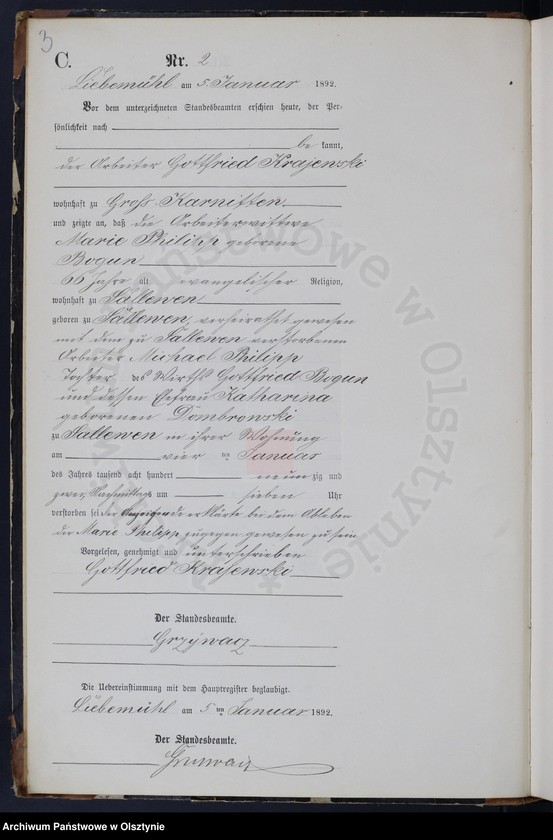 3
C.
Nr. 2
Liebemühl am 5. Januar 1892.
Vor dem unterzeichneten Standesbeamten erschien heute, der Per-
sönlichkeit nach
be kannt,
der Arbeiter Gottfried Krajewski
wohnhaft zu Groß Karnitten
und zeigte an, daß die Arbeiterwittwe
Marie Philipp geborene
Bogun
66 Jahre alt evangelischer Religion,
wohnhaft zu Sallewen
geboren zu Sallewen, verheirathet gewesen
mit dem zu Sallewen verstorbenen
Arbeiter Michael Philipp
Tochter des Wirths Gottfried Bogun
und dessen Ehefrau Katharina
geborenen Dombrowski
zu Sallewen in ihrer Wohnung
am vier ten Januar
des Jahres tausend acht hundert neun zig und
zwei, Nachmittags um sieben Uhr
verstorben sei der Anzeigende erklärte bei dem Ableben
der Marie Philipp zugegen gewesen zu sein
Vorgelesen, genehmigt und unterschrieben
Gottfried Krajewski
Der Standesbeamte.
Grzywacz
Die Uebereinstimmung mit dem Hauptregister beglaubigt.
Liebemühl am 5 ten Januar 1892.
Der Standesbeamte.
Grzywacz
Archiwum Państwowe w Olsztynie
Archiwum Państwowe w Olsztynie